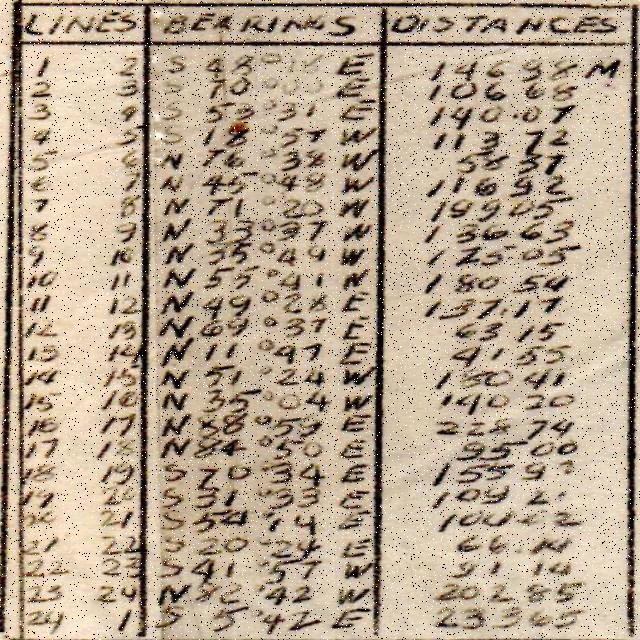 LINES BEARINGS DISTANCES
1 2 S 48° E 146 88 M
2 3 S 70° E 106 68
3 4 S 53° 31 E 140.07
4 5 S 18° 57 W 113 72
5 6 N 76° 38 W 58 37
6 7 N 45° 48 W 116 92
7 8 N 71° 20 W 199.05
8 9 N 33° 37 W 136.63
9 10 N 35° 49 W 125.05
10 11 N 55° 41 W 180 54
11 12 N 49° 28 E 137.17
12 13 N 69° 37 E 63 15
13 14 N 11° 47 E 41 55
14 15 N 51° 24 W 180 41
15 16 N 35° 04 W 140 20
16 17 N 88° 59 E 228 74
17 18 N 84° 50 E 95 00
18 19 S 70° 34 E 155 9
19 S 31° 33 E 109 2
21 S 54 14 E
21 22 S 20 E 66
22 23 S 41 57 W 91 14
23 24 N 42 W 202 85
24 1 S 5 42 E 233 65